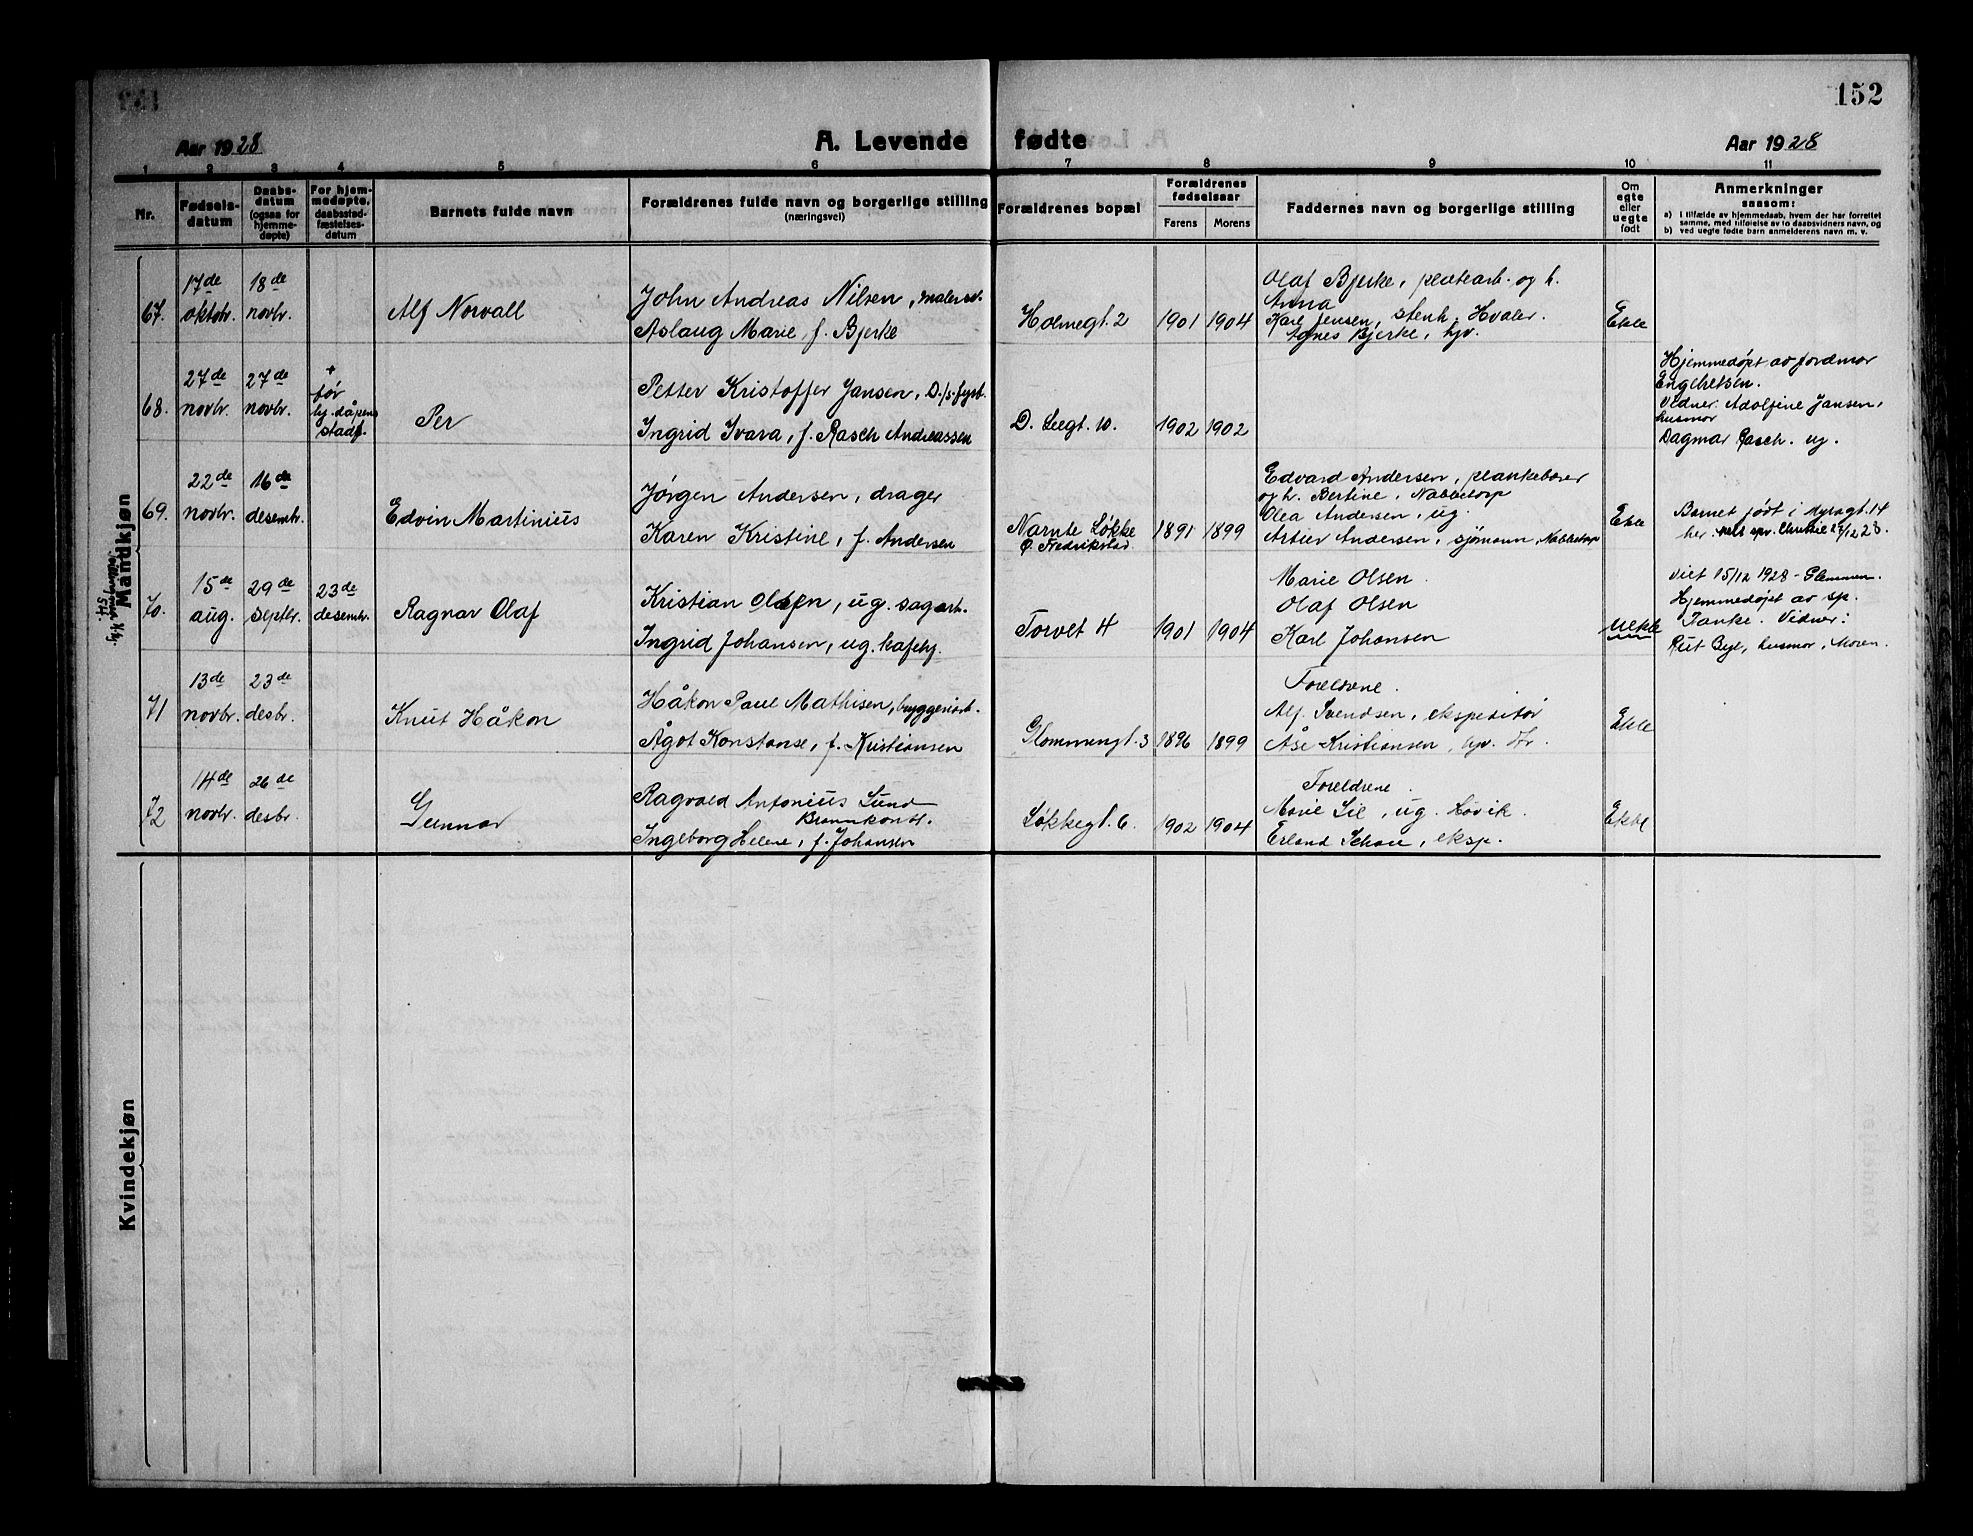 152
Aar 1928
A. Levende fødte
Aar 1928
1 2 3 4 5 6 7 8 9 10 11
Nr.
Fødsels-
datum
Daabs-
datum
(ogsaa for
hjemme-
døpte)
For hjem-
medøpte,
daabsstad-
fæstelses-
datum
Barnets fulde navn
Forældrenes fulde navn og borgerlige stilling
(næringsvei)
Forældrenes bopæl
Forældrenes
fødselsaar
Farens Morens
Faddernes navn og borgerlige stilling
Om
egte
eller
uegte
født
Anmerkninger
saasom:
a) I tilfælde av hjemmedaab, hvem der har forrettet
samme, med tilføielse av to daabsvidners navn, og
b) ved uegte fødte barn anmelderens navn m. v.
Mandkjøn
67.
17de
oktobr.
18de
novbr.
Alf Norvall
John Andreas Nilsen, malersv.
Aslaug Marie, f. Bjerke
Holmegt. 2
1901 1904
Olaf Bjerke, platearb. og h.
Anna
Karl Jensen, stenh. Hvaler.
Agnes Bjerke, hjv.
Ekte
68.
27de
novbr.
27de
novbr.
+
før
hj.dåpens
stadf.
Per
Petter Kristoffer Jansen, D./s.fyrb.
Ingrid Ivara, f. Rasch Andreassen
D. Lugt. 10.
1902 1902
Hjemmedøpt av jordmor
Engebretsen.
Vidner: Adolfine Jansen,
husmor
Dagmar Rasch. ug.
69.
22de
novbr.
16de
desembr.
Edvin Martinius
Jørgen Andersen, drager
Karen Kristine, f. Andersen
Narnte Løkke
Ø. Fredrikstad.
1891 1899
Edvard Andersen, plankebærer
og h. Bertine, Nabbetorp
Olea Andersen, ug.
Andersen, sjømann, Nabbetorp
Ekte
Barnet født i Myragt. 14
her. 27/12 28.
70.
15de
aug.
29de
septbr.
23de
desembr.
Ragnar Olaf
Kristian Olsen, ug. sagarb.
Ingrid Johansen, ug. kafehj.
Torvet 4
1901 1904
Marie Olsen.
Olaf Olsen
Karl Johansen
Uekte
Viet 15/12 1928 - Glemmen.
Hjemmedøpt av sp.
Tanke. Vidner:
Rut Bye, husmor, Moren.
71
13de
novbr.
23de
desbr.
Knut Håkon
Håkon Paul Mathisen, bryggeriarb.
Ågot Konstanse, f. Kristiansen
Glommengt. 3
1896 1899
Foreldrene.
Alf. Svendsen, ekspeditør
Åse Kristiansen, hjv. Hr.
Ekte
72
14de
novbr.
26de
desbr.
Gunnar
Ragvald Antonius Lund
Brannkonst.
Ingeborg Helene, f. Johansen
Løkkegt. 6.
1902 1904
Foreldrene.
Marie Lie, ug. Høvik.
Erland Schou, eksp.
Ekte
Kvindekjøn